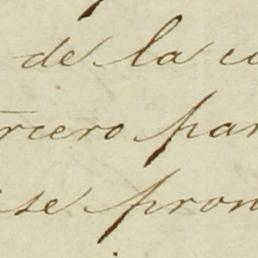 de la co
rcero par
se pron